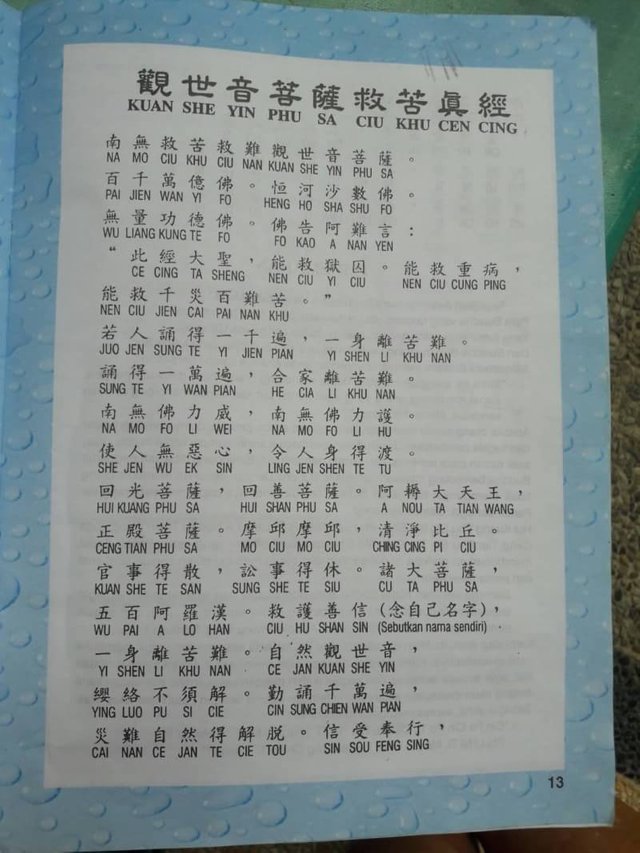 觀世音菩薩救苦眞經
KUAN SHE YIN PHU SA CIU KHU CEN CING
南無救苦救難觀世音菩薩。
NA MO CIU KHU CIU NAN KUAN SHE YIN PHU SA
百千萬億佛。恒河沙數佛。
PAI JIEN WAN YI FO HENG HO SHA SHU FO
無量功德佛。佛告阿難言：
WU LIANG KUNG TE FO FO KAO A NAN YEN
“此經大聖，能救獄囚。能救重病，
CE CING TA SHENG NEN CIU YI CIU NEN CIU CUNG PING
能救千災百難苦。”
NEN CIU JIEN CAI PAI NAN KHU
若人誦得一千遍，一身離苦難。
JUO JEN SUNG TE YI JIEN PIAN YI SHEN LI KHU NAN
誦得一萬遍，合家離苦難。
SUNG TE YI WAN PIAN HE CIA LI KHU NAN
南無佛力威，南無佛力護。
NA MO FO LI WEI NA MO FO LI HU
使人無惡心，令人身得渡。
SHE JEN WU EK SIN LING JEN SHEN TE TU
回光菩薩，回善菩薩。阿耨大天王，
HUI KUANG PHU SA HUI SHAN PHU SA A NOU TA TIAN WANG
正殿菩薩。摩邱摩邱，清淨比丘。
CENG TIAN PHU SA MO CIU MO CIU CHING CING PI CIU
官事得散，訟事得休。諸大菩薩，
KUAN SHE TE SAN SUNG SHE TE SIU CU TA PHU SA
五百阿羅漢。救護善信(念自己名字)，
WU PAI A LO HAN CIU HU SHAN SIN (Sebutkan nama sendiri)
一身離苦難。自然觀世音，
YI SHEN LI KHU NAN CE JAN KUAN SHE YIN
纓絡不須解。勤誦千萬遍，
YING LUO PU SI CIE CIN SUNG CHIEN WAN PIAN
災難自然得解脱。信受奉行，
CAI NAN CE JAN TE CIE TOU SIN SOU FENG SING
13